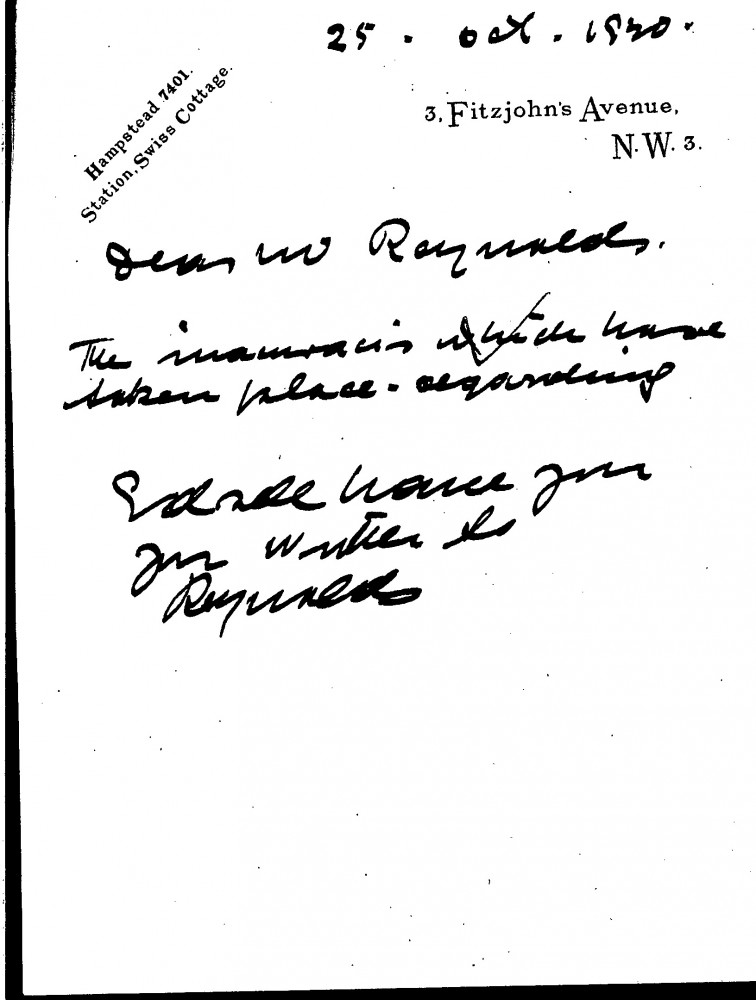 25 . Oct . 1920.
Hampstead 7401.
Station, Swiss Cottage.
3, Fitzjohn's Avenue,
N.W. 3.
Dear Mr Reynolds.
The inaccuracies which have
taken place - regarding
have you
you written to
Reynolds